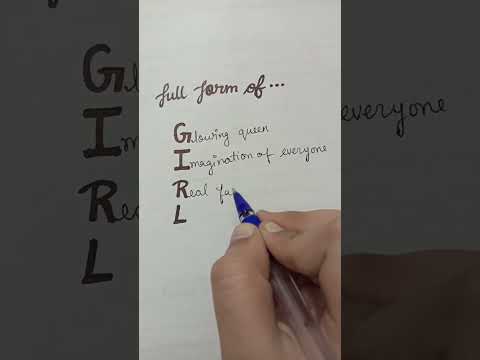 full form of...
Glowing queen
Imagination of everyone
Real fa
L